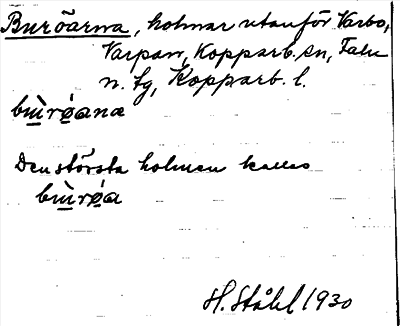 Buröarna, holmar utanför Varbo,
Varpan, Kopparb. sn, Falu
n. tg, Kopparb. l.
bù̲rǿ̲ana
Den största holmen kallas
bù̲rǿ̲a
H. Ståhl 1930